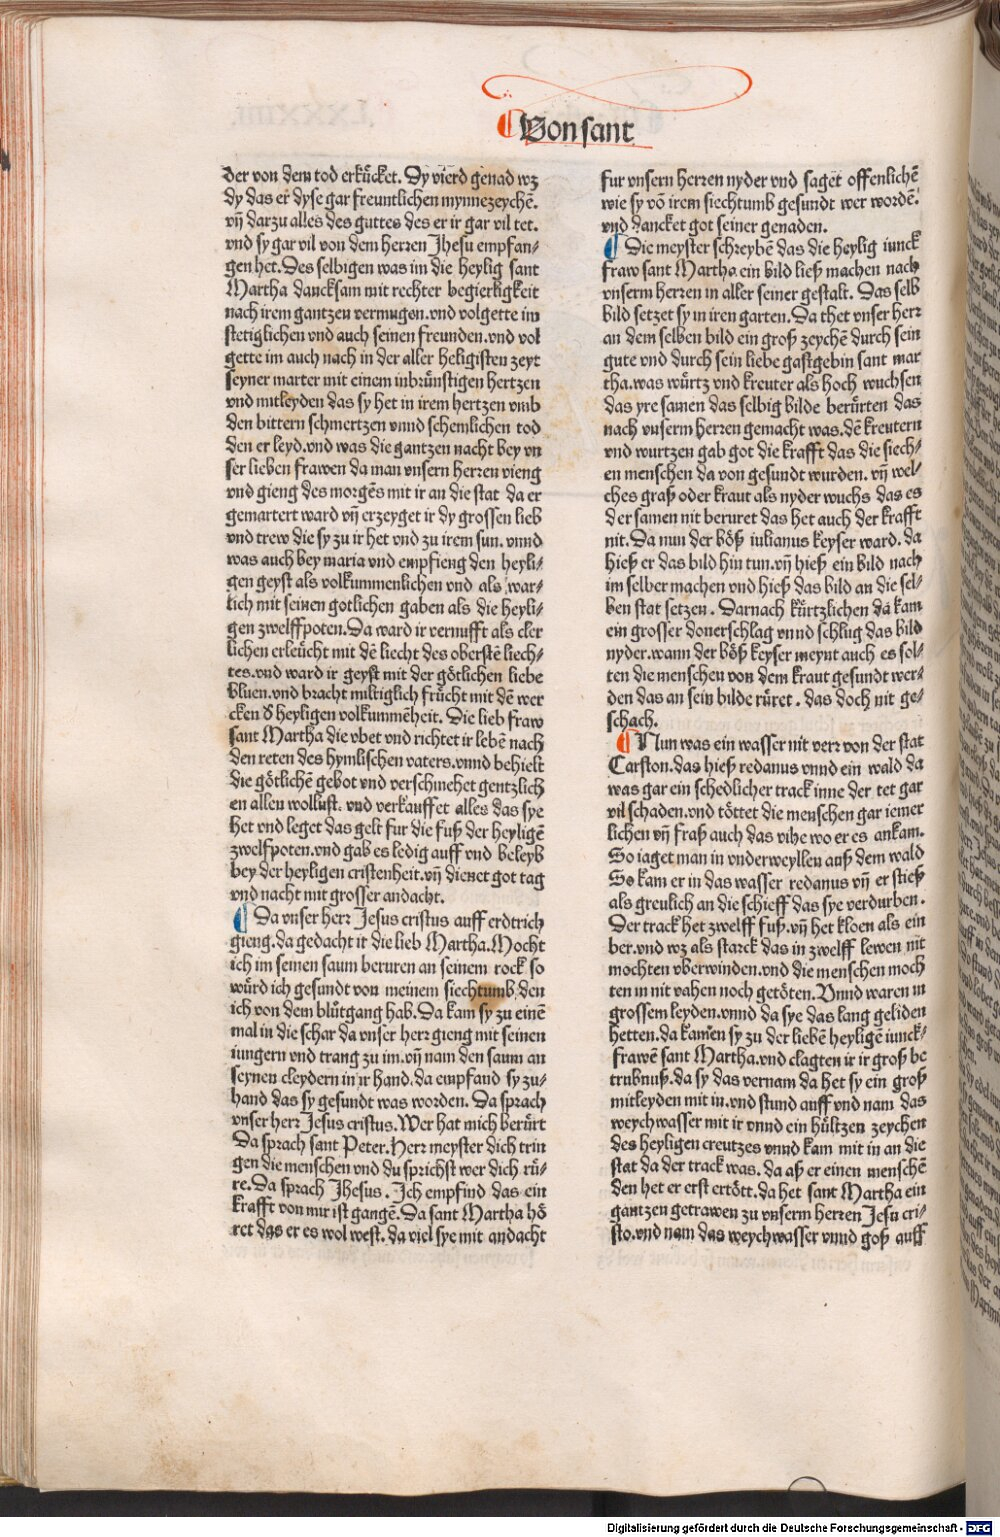 Von sant
der von dem tod erkücket. Dy vierd genad wz
dy das er dyse gar freuntlichen mynnezeychē.
vñ darzu alles des guttes des er ir gar vil tet.
vnd sy gar vil von dem herren Jhesu empfan-
gen het. Des selbigen was im die heylig sant
Martha dancksam mit rechter begierligkeit
nach irem gantzen vermugen. vnd volgette im
stetiglichen vnd auch seinen freunden. vnd vol
gette im auch nach in der aller heligisten zeyt
seyner marter mit einem inbrünstigen hertzen
vnd mitleyden das sy het in irem hertzen vmb
den bittern schmertzen vnnd schemlichen tod
den er leyd. vnd was die gantzen nacht bey vn
ser lieben frawen da man vnsern herren vieng
vnd gieng des morgēs mit ir an die stat da er
gemartert ward vñ erzeyget ir dy grossen lieb
vnd trew die sy zu ir het vnd zu irem sun. vnnd
was auch bey maria vnd empfieng den heyli-
gen geyst als volkummenlichen vnd als war-
lich mit seinen gotlichen gaben als die heyli-
gen zwelffpoten. Da ward ir vernufft als cler
lichen erleücht mit dē liecht des oberstē liech-
tes. vnd ward ir geyst mit der götlichen liebe
bluen. vnd bracht miltiglich frücht mit dē wer
cken d̕ heyligen volkummēheit. Die lieb fraw
sant Martha die vbet vnd richtet ir lebē nach
den reten des hymlischen vaters. vnnd behielt
die götlichē gebot vnd verschmehet gentzlich
en allen wollust. vnd verkauffet alles das sye
het vnd leget das gelt fur die fuß der heyligē
zwelfpoten. vnd gab es ledig auff vnd beleyb
bey der heyligen cristenheit. vñ dienet got tag
vnd nacht mit grosser andacht.
Da vnser herr Jesus cristus auff erdtrich
gieng. da gedacht ir die lieb Martha. Mocht
ich im seinen saum beruren an seinem rock so
würd ich gesundt von meinem siechtumb den
ich von dem blütgang hab. Da kam sy zu einē
mal in die schar da vnser herr gieng mit seinen
iungern vnd trang zu im. vñ nam den saum an
seynen cleydern in ir hand. da empfand sy zu-
hand das sy gesundt was worden. Da sprach
vnser herr Jesus cristus. Wer hat mich berürt
Da sprach sant Peter. Herr meyster dich trin
gen die menschen vnd du sprichst wer dich rü-
re. Da sprach Jhesus. Ich empfind das ein
krafft von mir ist gangē. Da sant Martha hö
ret das er es wol west. da viel sye mit andacht
fur vnsern herren nyder vnd saget offenlichē
wie sy vō irem siechtumb gesundt wer wordē.
vnd dancket got seiner genaden.
Die meyster schreybē das die heylig iunck
fraw sant Martha ein bild ließ machen nach
vnserm herren in aller seiner gestalt. Das selb
bild setzet sy in iren garten. Da thet vnser herr
an dem selben bild ein groß zeychē durch sein
gute vnd durch sein liebe gastgebin sant mar
tha. was würtz vnd kreuter als hoch wuchsen
das yre samen das selbig bilde berürten das
nach vnserm herren gemacht was. dē kreutern
vnd wurtzen gab got die krafft das die siech-
en menschen da von gesundt wurden. vñ wel-
ches graß oder kraut als nyder wuchs das es
der samen nit beruret das het auch der krafft
nit. Da nun der böß iulianus keyser ward. da
hieß er das bild hin tun. vñ hieß ein bild nach
im selber machen vnd hieß das bild an die sel-
ben stat setzen. Darnach kürtzlichen da kam
ein grosser donerschlag vnnd schlug das bild
nyder. wann der böß keyser meynt auch es sol-
ten die menschen von dem kraut gesundt wer-
den das an sein bilde rüret. das doch nit ge-
schach.
Nun was ein wasser nit verr von der stat
Carston. das hieß redanus vnnd ein wald da
was gar ein schedlicher track inne der tet gar
vil schaden. vnd töttet die menschen gar iemer
lichen vñ fraß auch das vihe wo er es ankam.
So iaget man in vnderweyllen auß dem wald
So kam er in das wasser redanus vñ er stieß
als greulich an die schieff das sye verdurben.
Der track het zwelff fuß. vñ het kloen als ein
ber. vnd wz als starck das in zwelff lewen nit
mochten vberwinden. vnd die menschen moch
ten in nit vahen noch getöten. Vnnd waren in
grossem leyden. vnnd da sye das lang geliden
hetten. da kamen sy zu der liebē heyligē iunck-
frawē sant Martha. vnd clagten ir ir groß be
trubnuß. da sy das vernam da het sy ein groß
mitleyden mit in. vnd stund auff vnd nam das
weychwasser mit ir vnnd ein hültzen zeychen
des heyligen creutzes vnnd kam mit in an die
stat da der track was. da aß er einen menschē
den het er erst ertött. da het sant Martha ein
gantzen getrawen zu vnserm herren Jesu cri-
sto. vnd nam das weychwasser vnnd goß auff
Digitalisierung gefördert durch die Deutsche Forschungsgemeinschaft - DFG